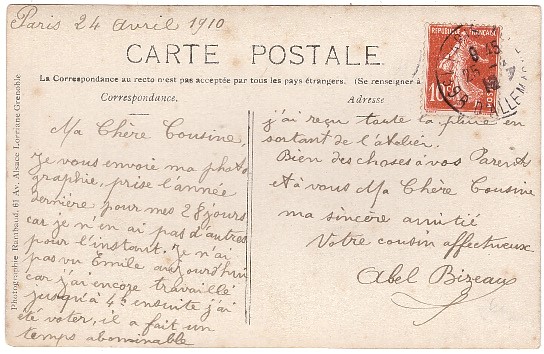 Paris 24 avril 1910
CARTE POSTALE
La Correspondance au recto n'est pas acceptée par tous les pays étrangers. (Se renseigner à
Correspondance.
Adresse
Ma Chère Cousine,
Je vous envoie ma photo
graphie, prise l'année
dernière pour mes 28 jours
car je n'en ai pas d'autres
pour l'instant. Je n'ai
pas vu Emile aujourd'hui
car j'ai encore travaillé
jusqu'à 4h ensuite j'ai
été voter, il a fait un
temps abominable
j'ai reçu toute la pluie en
sortant de l'atelier.
Bien des choses à vos Parents
et à vous Ma Chère Cousine
ma sincère amitié
Votre cousin affectueux
Abel Bizeau
Photographie Rambaud, 61 Av. Alsace Lorraine Grenoble
REPUBLIQUE FRANÇAISE
10
POSTES